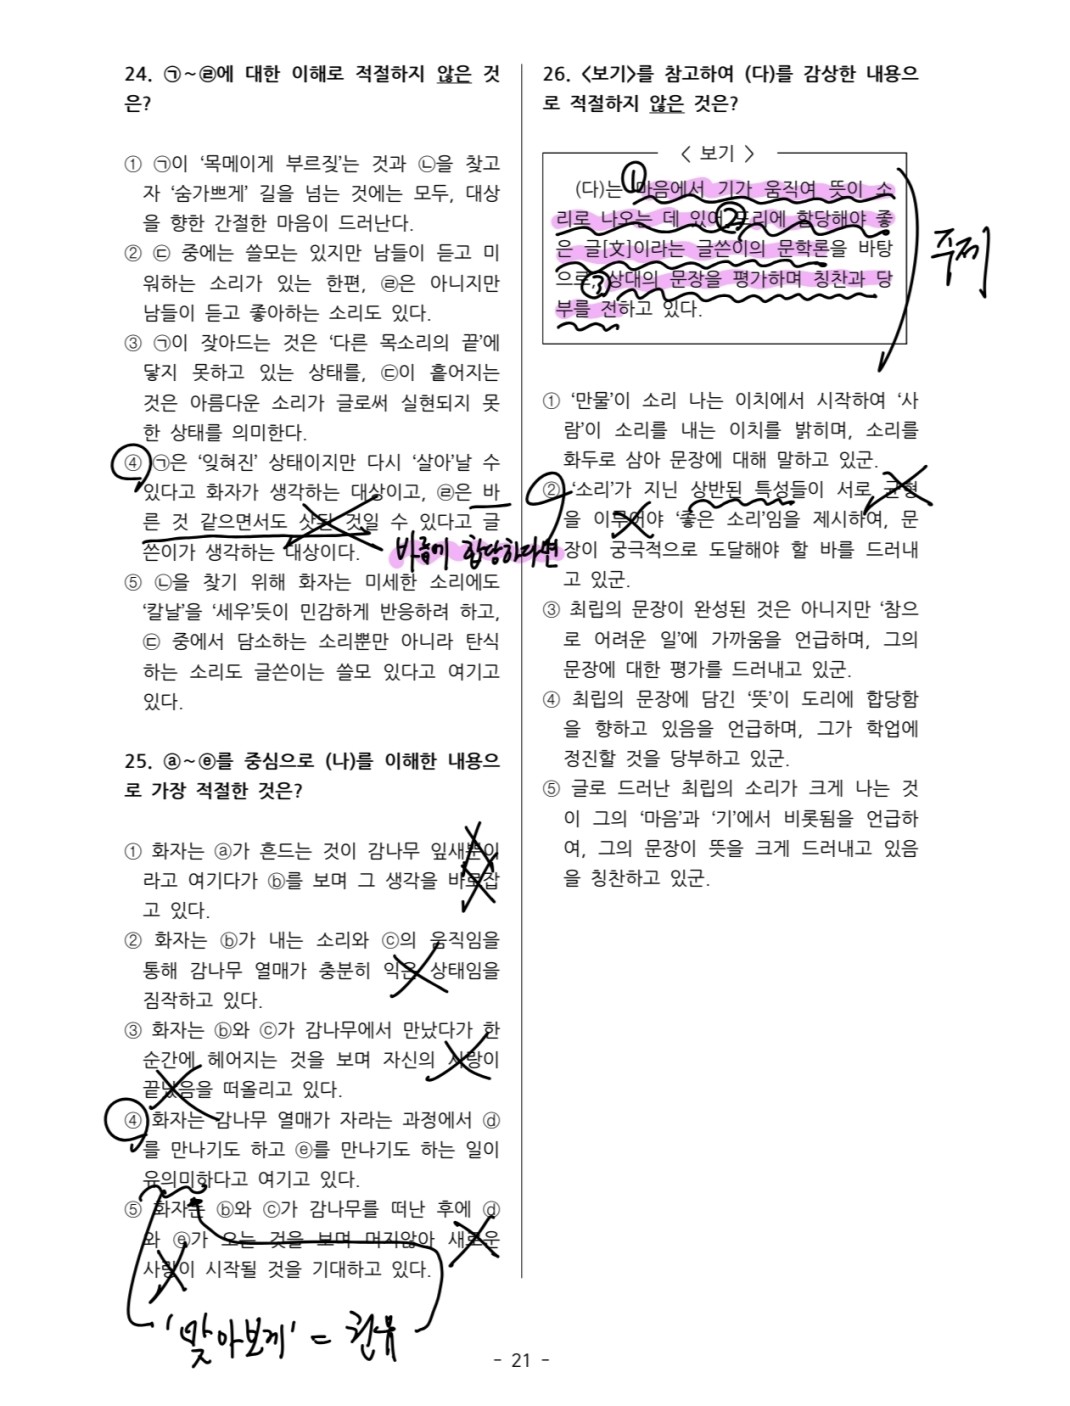 24. ㉠~㉣에 대한 이해로 적절하지 않은 것
은?
① ㉠이 ‘목메이게 부르짖’는 것과 ㉡을 찾고
자 ‘숨가쁘게’ 길을 넘는 것에는 모두, 대상
을 향한 간절한 마음이 드러난다.
② ㉢ 중에는 쓸모는 있지만 남들이 듣고 미
워하는 소리가 있는 한편, ㉣은 아니지만
남들이 듣고 좋아하는 소리도 있다.
③ ㉠이 잦아드는 것은 ‘다른 목소리의 끝’에
닿지 못하고 있는 상태를, ㉢이 흩어지는
것은 아름다운 소리가 글로써 실현되지 못
한 상태를 의미한다.
④ ㉠은 ‘잊혀진’ 상태이지만 다시 ‘살아’날 수
있다고 화자가 생각하는 대상이고, ㉣은 바
른 것 같으면서도 삿된 것일 수 있다고 글
쓴이가 생각하는 대상이다.
바름에 합당하다면
⑤ ㉡을 찾기 위해 화자는 미세한 소리에도
‘칼날’을 ‘세우’듯이 민감하게 반응하려 하고,
㉢ 중에서 담소하는 소리뿐만 아니라 탄식
하는 소리도 글쓴이는 쓸모 있다고 여기고
있다.
25. ⓐ~ⓔ를 중심으로 (나)를 이해한 내용으
로 가장 적절한 것은?
① 화자는 ⓐ가 흔드는 것이 감나무 잎새뿐이
라고 여기다가 ⓑ를 보며 그 생각을 바로잡
고 있다.
② 화자는 ⓑ가 내는 소리와 ⓒ의 움직임을
통해 감나무 열매가 충분히 익은 상태임을
짐작하고 있다.
③ 화자는 ⓑ와 ⓒ가 감나무에서 만났다가 한
순간에 헤어지는 것을 보며 자신의 사랑이
끝났음을 떠올리고 있다.
④ 화자는 감나무 열매가 자라는 과정에서 ⓓ
를 만나기도 하고 ⓔ를 만나기도 하는 일이
유의미하다고 여기고 있다.
⑤ 화자는 ⓑ와 ⓒ가 감나무를 떠난 후에 ⓓ
와 ⓔ가 오는 것을 보며 머지않아 새로운
사랑이 시작될 것을 기대하고 있다.
'맞아보게' = 권유
26. <보기>를 참고하여 (다)를 감상한 내용으
로 적절하지 않은 것은?
< 보기 >
(다)는 ① 마음에서 기가 움직여 뜻이 소
리로 나오는 데 있어 ② 도리에 합당해야 좋
은 글[文]이라는 글쓴이의 문학론을 바탕
으로, ③ 상대의 문장을 평가하며 칭찬과 당
부를 전하고 있다.
주제
① ‘만물’이 소리 나는 이치에서 시작하여 ‘사
람’이 소리를 내는 이치를 밝히며, 소리를
화두로 삼아 문장에 대해 말하고 있군.
② ‘소리’가 지닌 상반된 특성들이 서로 균형
을 이루어야 ‘좋은 소리’임을 제시하여, 문
장이 궁극적으로 도달해야 할 바를 드러내
고 있군.
③ 최립의 문장이 완성된 것은 아니지만 ‘참으
로 어려운 일’에 가까움을 언급하며, 그의
문장에 대한 평가를 드러내고 있군.
④ 최립의 문장에 담긴 ‘뜻’이 도리에 합당함
을 향하고 있음을 언급하며, 그가 학업에
정진할 것을 당부하고 있군.
⑤ 글로 드러난 최립의 소리가 크게 나는 것
이 그의 ‘마음’과 ‘기’에서 비롯됨을 언급하
여, 그의 문장이 뜻을 크게 드러내고 있음
을 칭찬하고 있군.
- 21 -